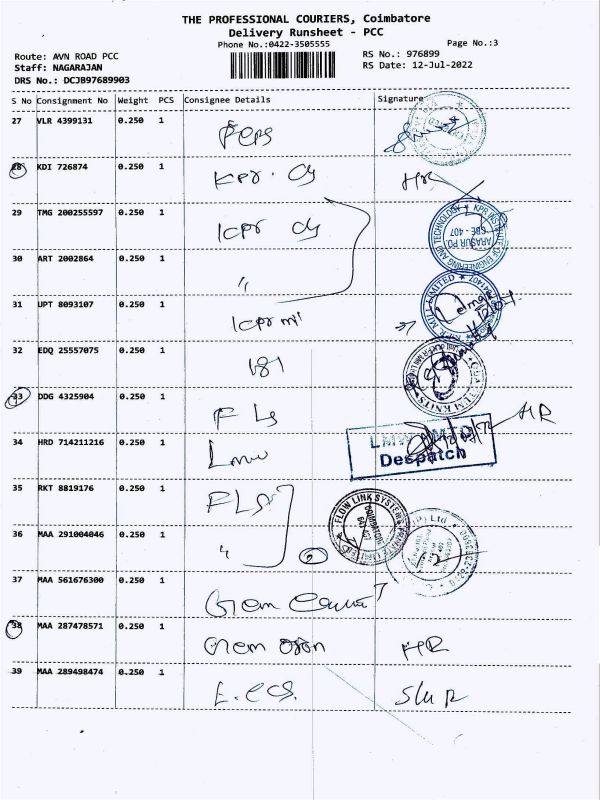 THE PROFESSIONAL COURIERS, Coimbatore
Delivery Runsheet - PCC
Phone No.:0422-3505555
Page No.:3
Route: AVN ROAD PCC
RS No.: 976899
Staff: NAGARAJAN
RS Date: 12-Jul-2022
DRS No.: DCJB97689903
S No Consignment No Weight PCS Consignee Details Signature
27 VLR 4399131 0.250 1
28 KDI 726874 0.250 1 KPR. Clg HR
29 TMG 200255597 0.250 1 KPR Clg
KPR INSTITUTE OF ENGINEERING AND TECHNOLOGY
ARASUR PO.
CBE - 407
30 ART 2002864 0.250 1 "
31 UPT 8093107 0.250 1 KPR mil
KPR MILL LIMITED
32 EDQ 25557075 0.250 1 181
33 DDG 4325904 0.250 1 FLS HR
34 HRD 714211216 0.250 1 Lmw
LMW
Despatch
35 RKT 8819176 0.250 1 FLS
FLOW LINK SYSTEMS
COIMBATORE
36 MAA 291004046 0.250 1 " 2
(P) Ltd
37 MAA 561676300 0.250 1 Gem
38 MAA 287478571 0.250 1 Gem HR
39 MAA 289498474 0.250 1